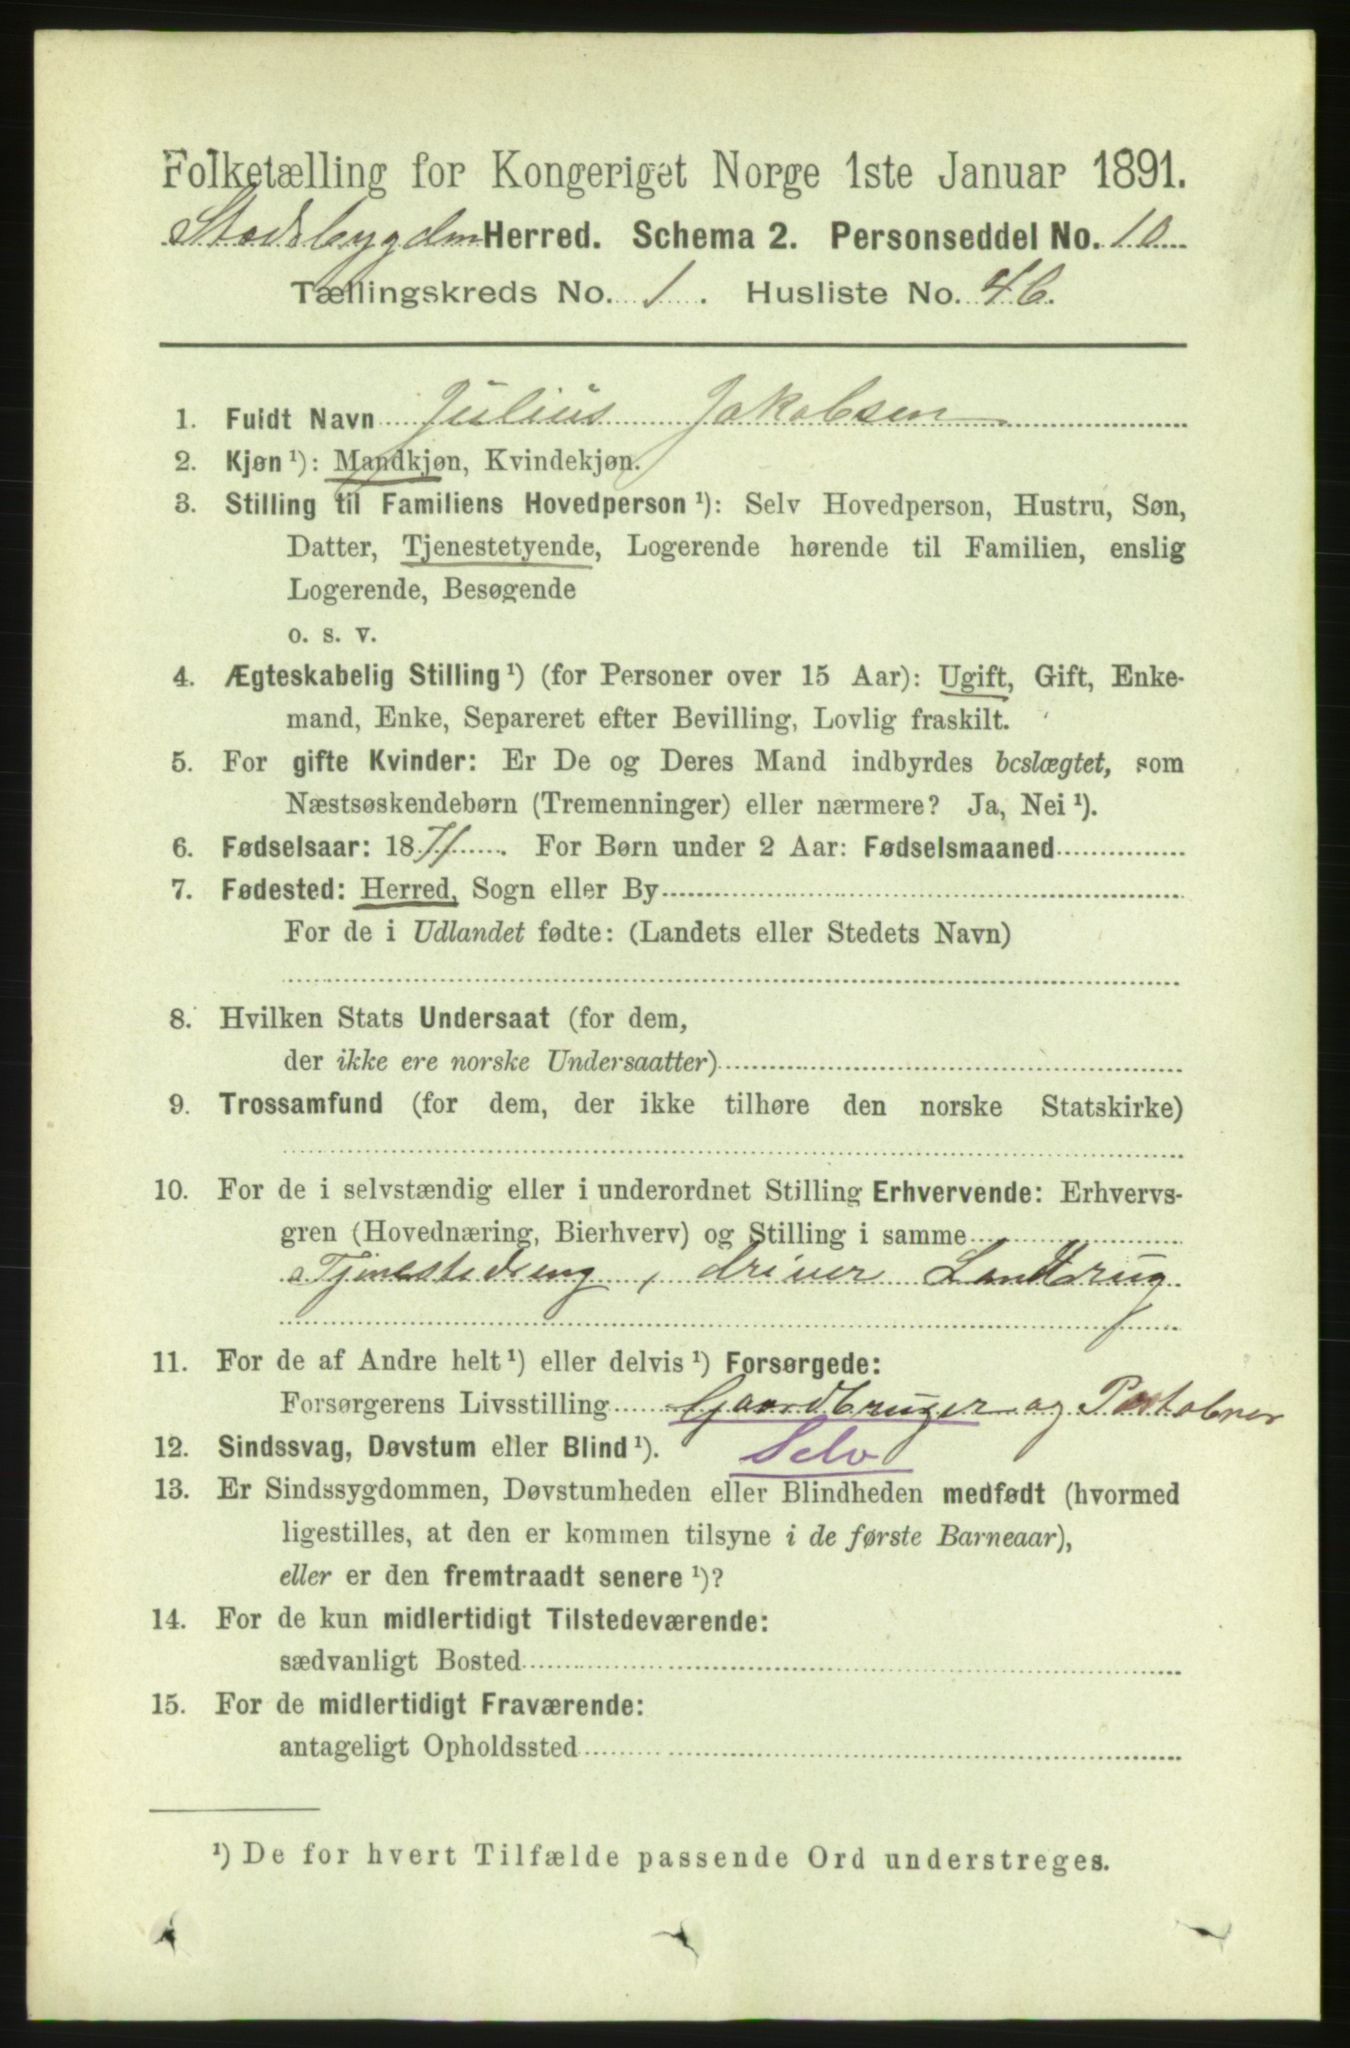 Folketælling for Kongeriget Norge 1ste Januar 1891.
Stadsbygden Herred. Schema 2. Personseddel No. 10
Tællingskreds No. 1. Husliste No. 46.
1. Fuldt Navn Julius Jakobsen
2. Kjøn ¹): Mandkjøn, Kvindekjøn.
3. Stilling til Familiens Hovedperson ¹): Selv Hovedperson, Hustru, Søn,
Datter, Tjenestetyende, Logerende hørende til Familien, enslig
Logerende, Besøgende
o. s. v.
4. Ægteskabelig Stilling ¹) (for Personer over 15 Aar): Ugift, Gift, Enke-
mand, Enke, Separeret efter Bevilling, Lovlig fraskilt.
5. For gifte Kvinder: Er De og Deres Mand indbyrdes beslægtet, som
Næstsøskendebørn (Tremenninger) eller nærmere? Ja, Nei ¹).
6. Fødselsaar: 1871. For Børn under 2 Aar: Fødselsmaaned
7. Fødested: Herred, Sogn eller By
For de i Udlandet fødte: (Landets eller Stedets Navn)
8. Hvilken Stats Undersaat (for dem,
der ikke ere norske Undersaatter)
9. Trossamfund (for dem, der ikke tilhøre den norske Statskirke)
10. For de i selvstændig eller i underordnet Stilling Erhvervende: Erhvervs-
gren (Hovednæring, Bierhverv) og Stilling i samme
Tjenestedreng, driver Landbrug
11. For de af Andre helt ¹) eller delvis ¹) Forsørgede:
Forsørgerens Livsstilling Gaardbruger og Postabner
12. Sindssvag, Døvstum eller Blind ¹). Selv
13. Er Sindssygdommen, Døvstumheden eller Blindheden medfødt (hvormed
ligestilles, at den er kommen tilsyne i de første Barneaar),
eller er den fremtraadt senere ¹)?
14. For de kun midlertidigt Tilstedeværende:
sædvanligt Bosted
15. For de midlertidigt Fraværende:
antageligt Opholdssted
¹) De for hvert Tilfælde passende Ord understreges.